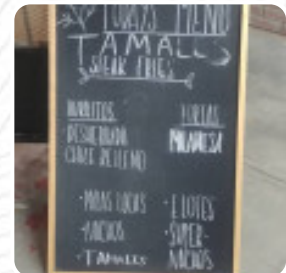 TODAYS MENU
TAMALES
STEAK FRIES
BURRITOS
DESHEBRADA
CHILE RELLENO
TORTAS
MILANESA
·PAPAS LOCAS
·NACHOS
·TAMALES
·ELOTES
·SUPER-
NACHOS